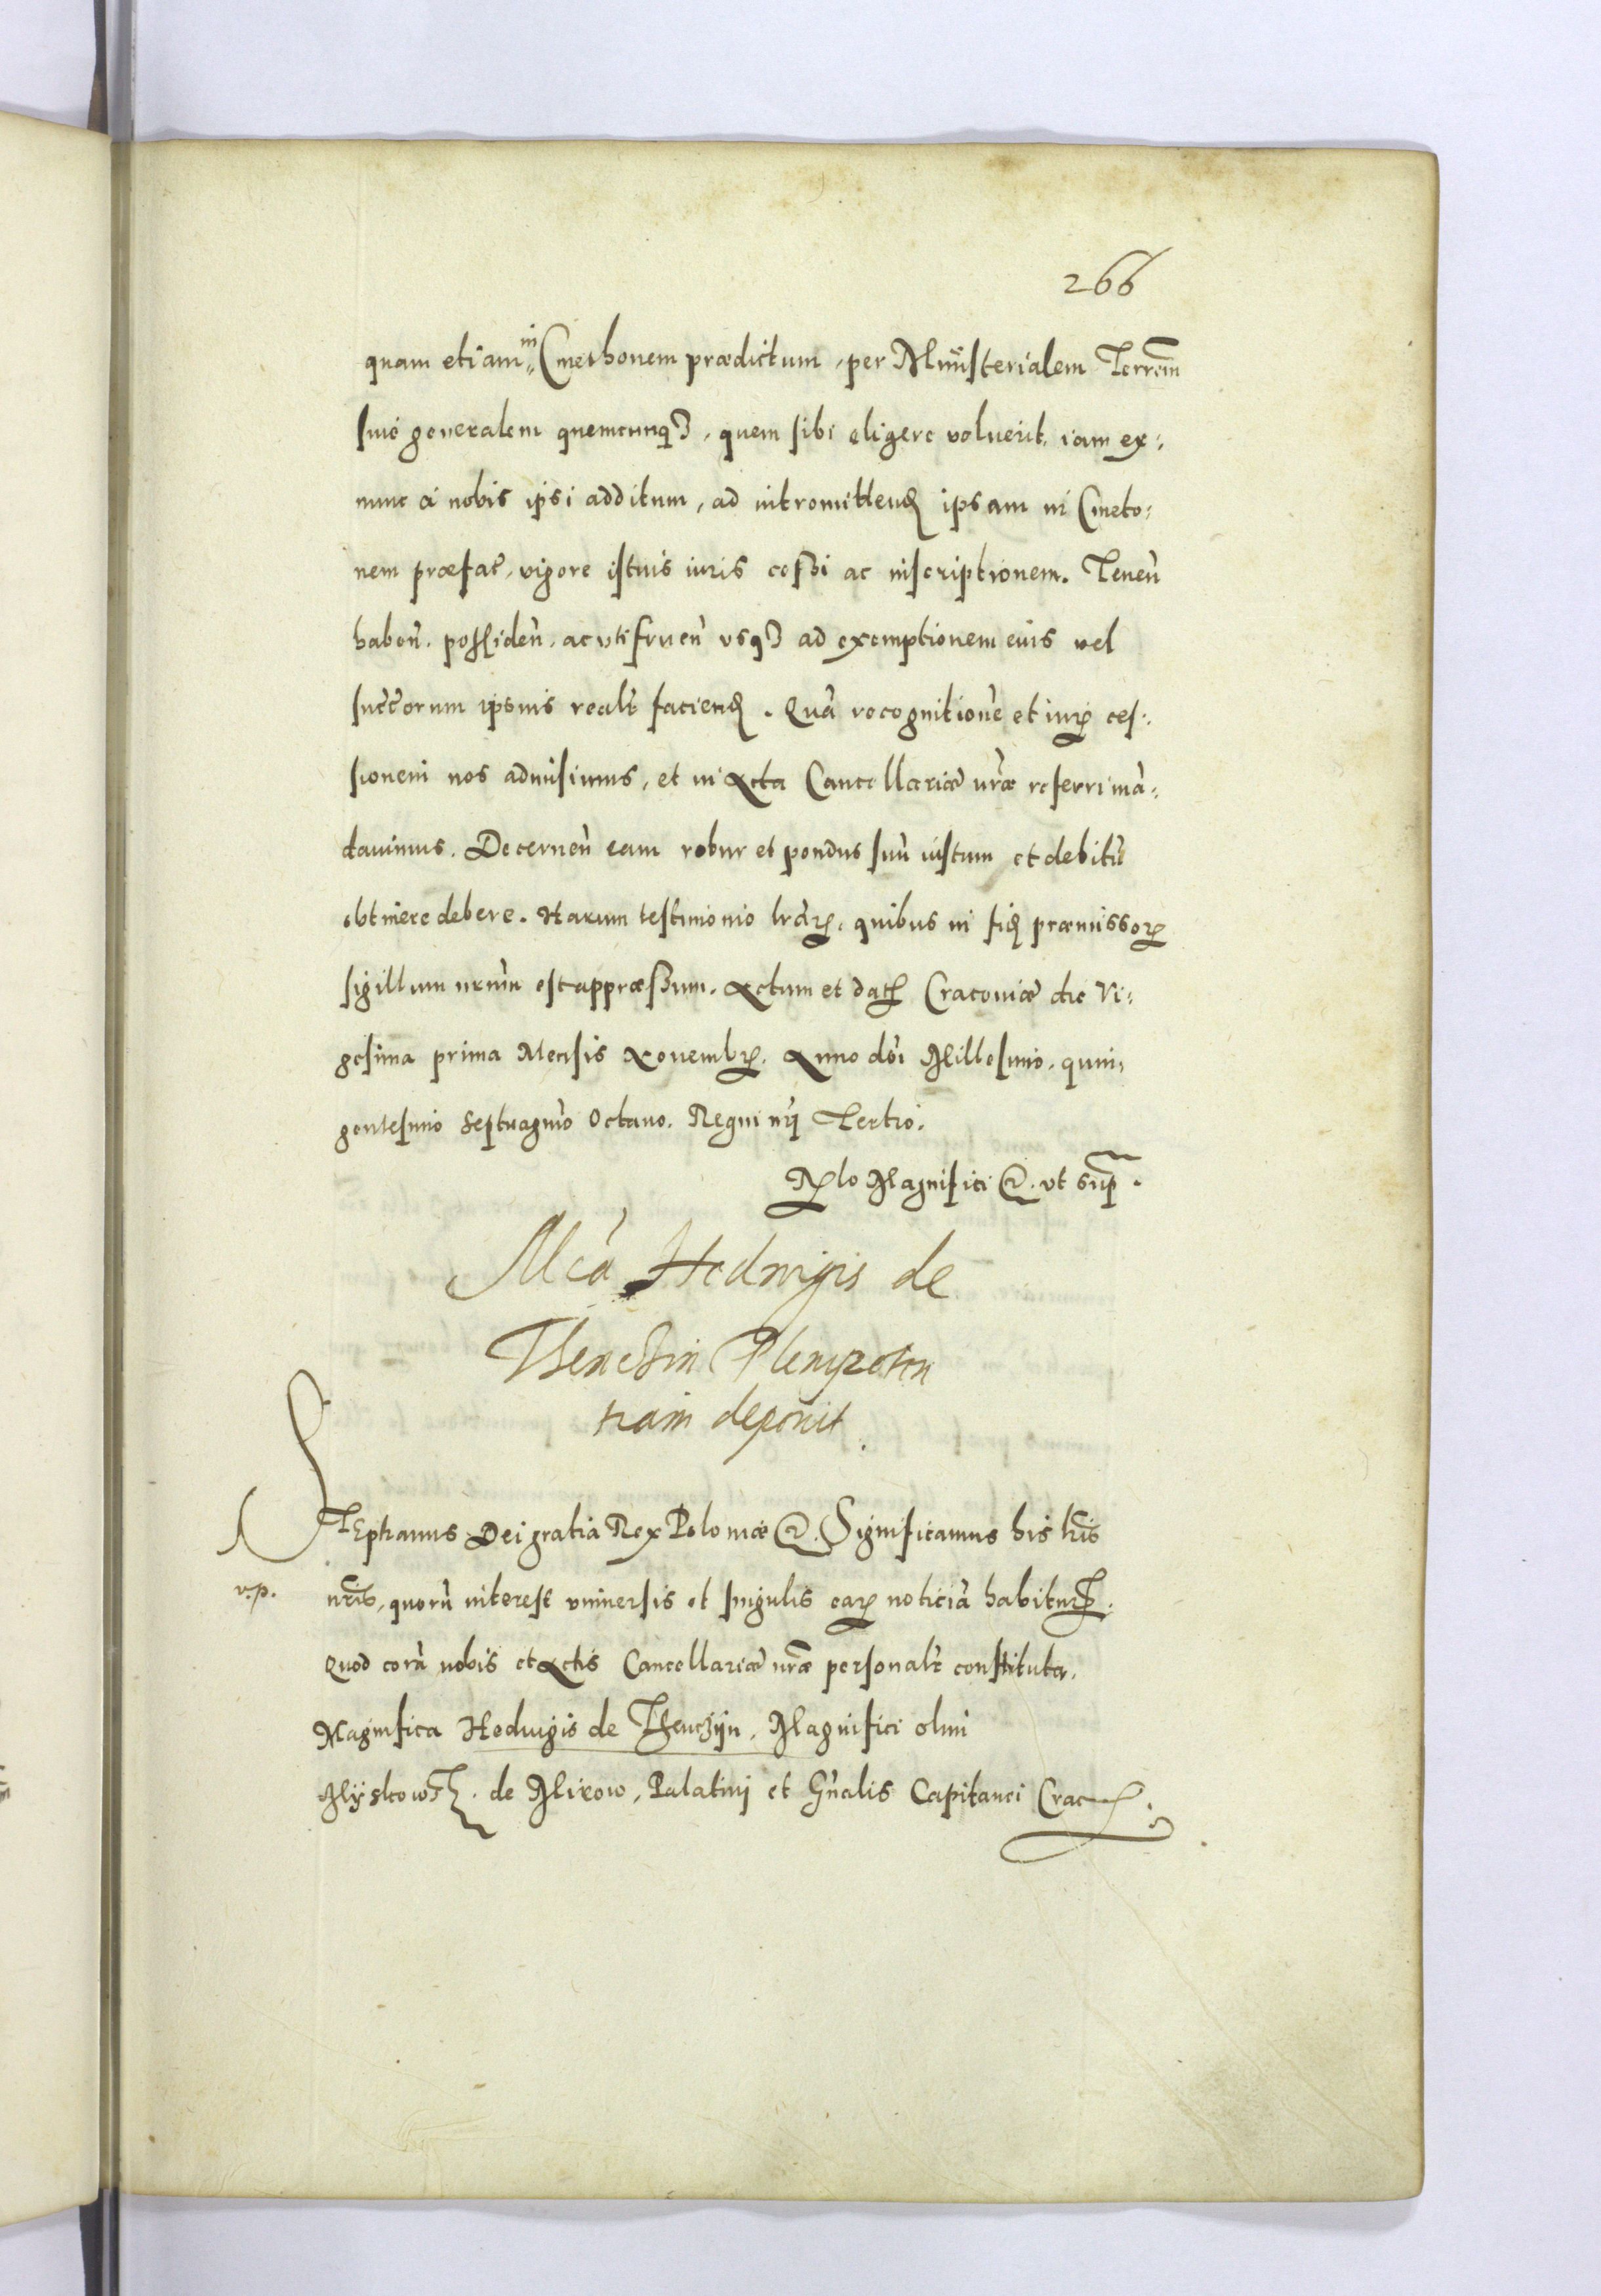 266
quam etiam in Cmethonem prædictum, per Ministerialem Terrem̄
siue generalem quemcunqꝫ, quem sibi eligere voluerit, iam ex:
nunc a nobis ipsi additum, ad intromittenđ ipsam in Cmeto:
nem præfat̄, vigore istius iuris cessi ac inscriptionem. Tenen̄
haben̄. possiden̄. ac vtifruen̄ vsqꝫ ad exemptionem eius vel
succ̄orum ipsius realr̄ faciend. Quā recognitionē et iurꝭ ces:
sionem nos admisimus, et in Acta Cancellariæ nr̄æ referri mā:
dauimus. Decernen̄ eam robur et pondus suū iustum et debitū
obtinere debere. Harum testimonio lr̄arꝝ, quibus in fiđ præmissorꝝ
sigillum nr̄um est appræssum. Actum et datꝭ Cracouiæ die Vi:
gesima prima Mensis Nouembrꝭ. Anno dn̄i Millesimo, quin,
gentesimo Septuagmō Octauo. Regni nr̄i Tertio.
Rꝉo Magnifici &. vt sup̄.
Mcā Hedwigis de
Thenczin Plenipoten
tiam deponit.
STEphanus Dei gratia Rex Poloniæ &. Significamus his lr̄is
v.p.
nr̄is, quorū interest vniuersis et singulis earꝝ noticiā habiturꝭ.
Quod corā nobis et Actis Cancellariæ nr̄æ personalr̄ constituta,
Magnifica Hedwigis de Thenczijn, Magnifici olim
Myskowsꝭ. de Mirow, Palatinj et Gn̄alis Capitanei Cracꝭ.